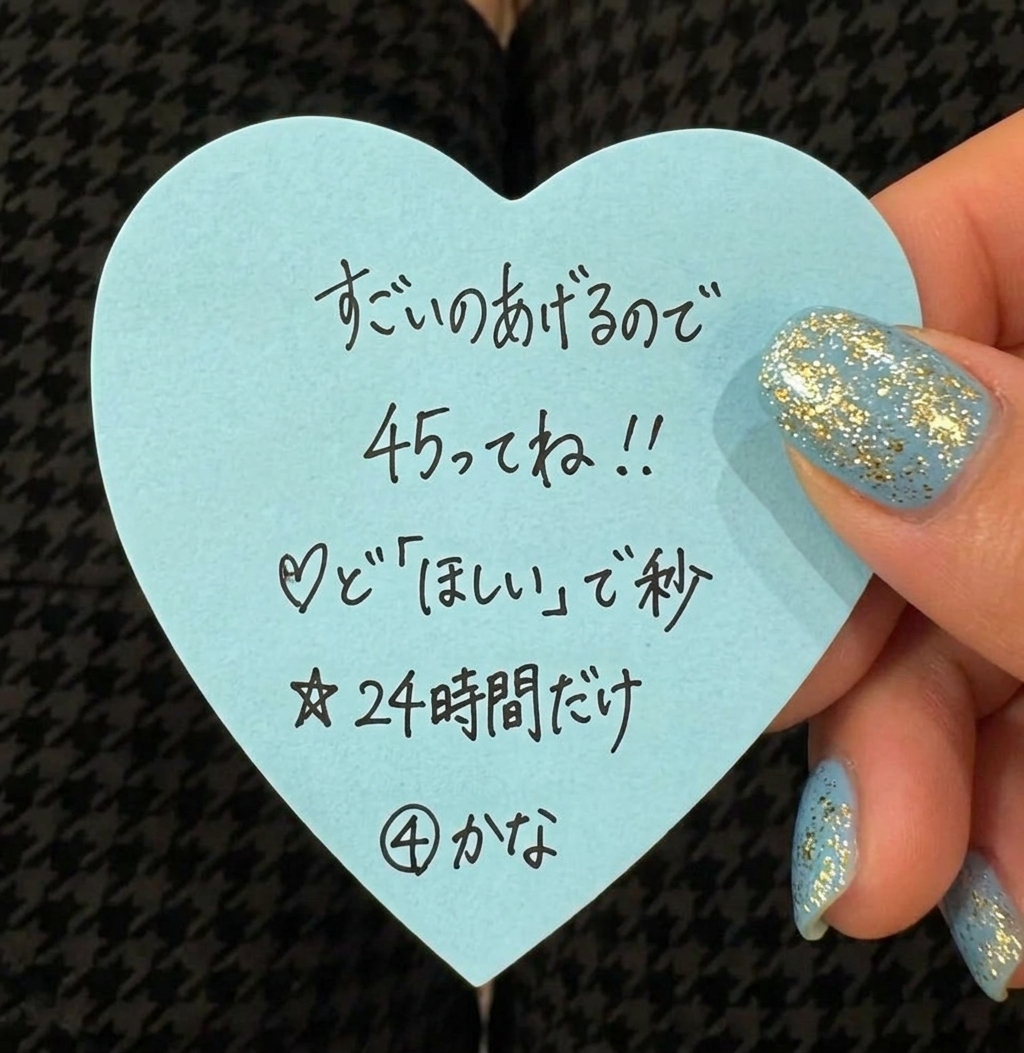 すごいのあげるので
45ってね!!
♡ど「ほしい」で秒
☆24時間だけ
④かな